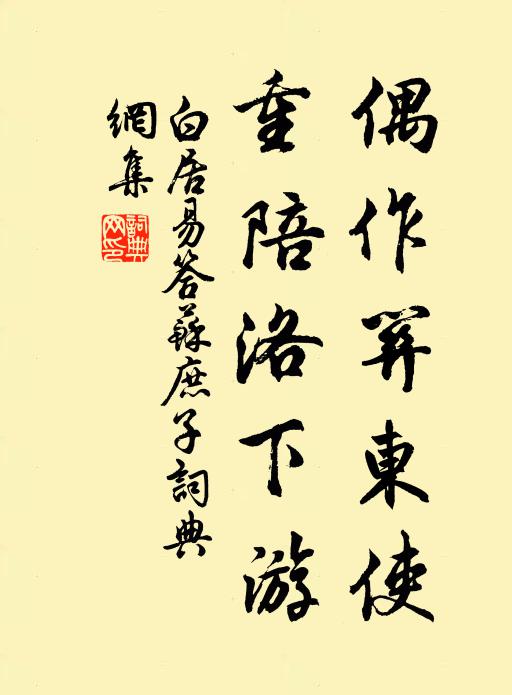 偶作關東使
重陪洛下游
白居易答蘇庶子詞典
網集
詞典網印